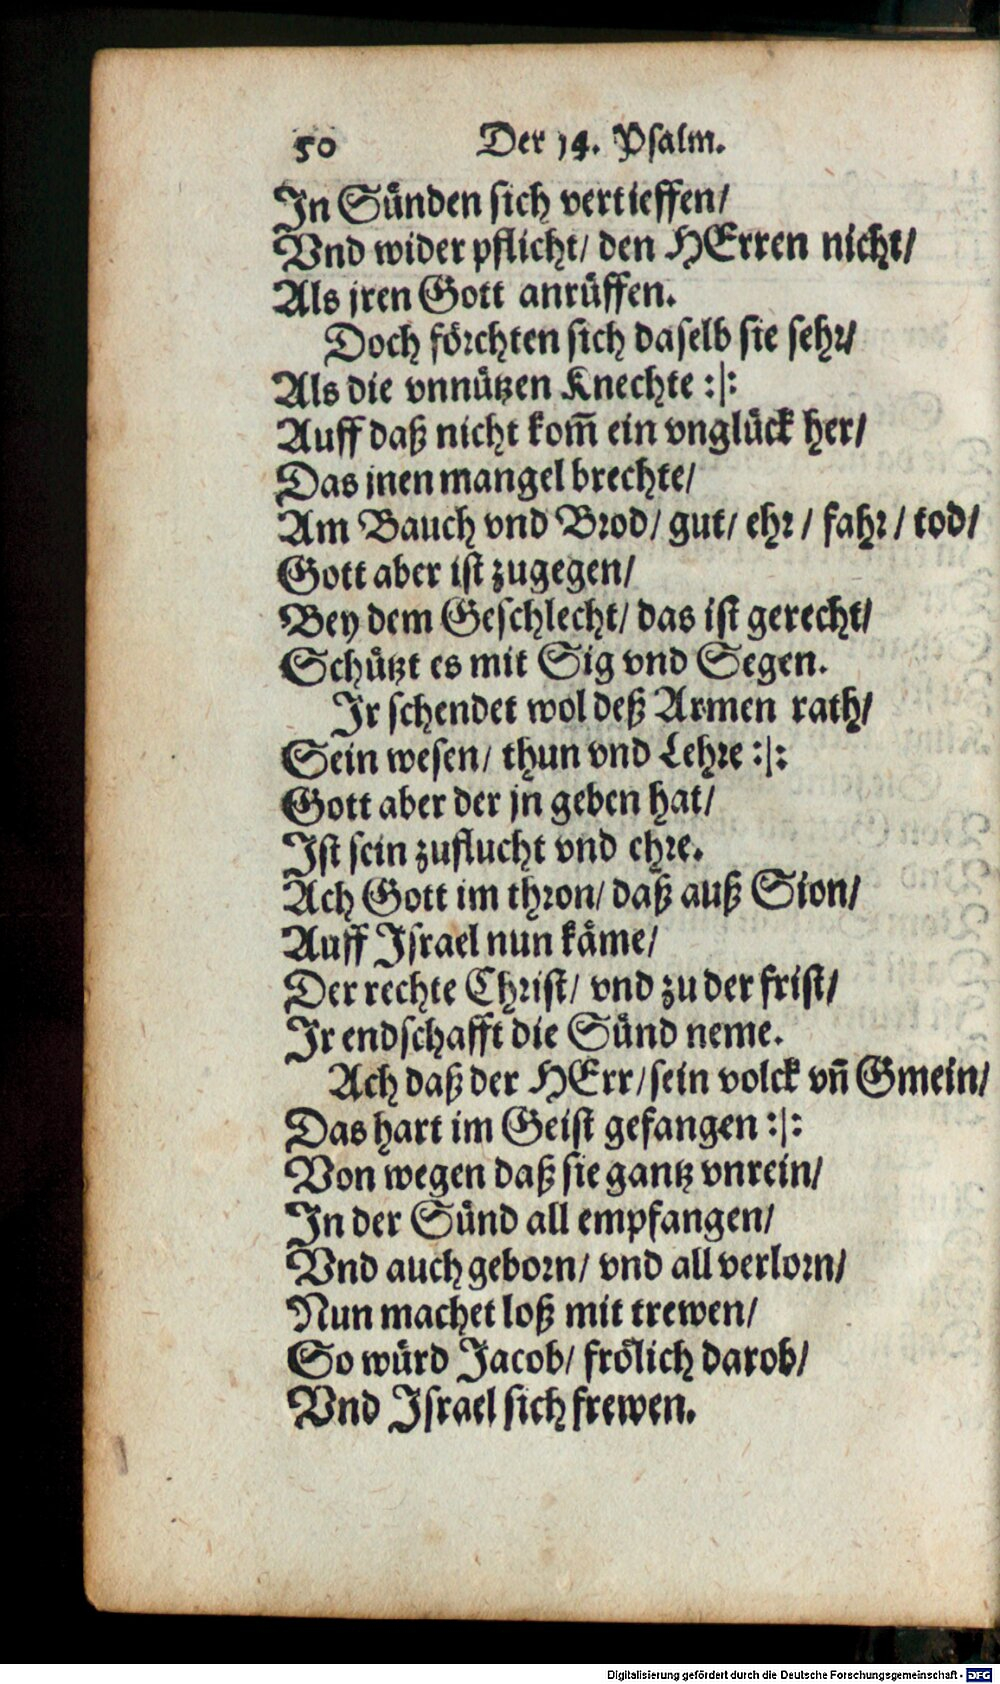 50 Der 14. Psalm.
In Sünden sich vertieffen/
Vnd wider pflicht/ den HErren nicht/
Als jren Gott anrüffen.
Doch förchten sich daselb sie sehr/
Als die vnnützen Knechte :|:
Auff daß nicht kom̃ ein vnglück her/
Das jnen mangel brechte/
Am Bauch vnd Brod/ gut/ ehr/ fahr/ tod/
Gott aber ist zugegen/
Bey dem Geschlecht/ das ist gerecht/
Schützt es mit Sig vnd Segen.
Ir schendet wol deß Armen rath/
Sein wesen/ thun vnd Lehre :|:
Gott aber der jn geben hat/
Ist sein zuflucht vnd ehre.
Ach Gott im thron/ daß auß Sion/
Auff Israel nun käme/
Der rechte Christ/ vnd zu der frist/
Ir endschafft die Sünd neme.
Ach daß der HErr/ sein volck vñ Gmein/
Das hart im Geist gefangen :|:
Von wegen daß sie gantz vnrein/
In der Sünd all empfangen/
Vnd auch geborn/ vnd all verlorn/
Nun machet loß mit trewen/
So würd Jacob/ frölich darob/
Vnd Israel sich frewen.
Digitalisierung gefördert durch die Deutsche Forschungsgemeinschaft - DFG